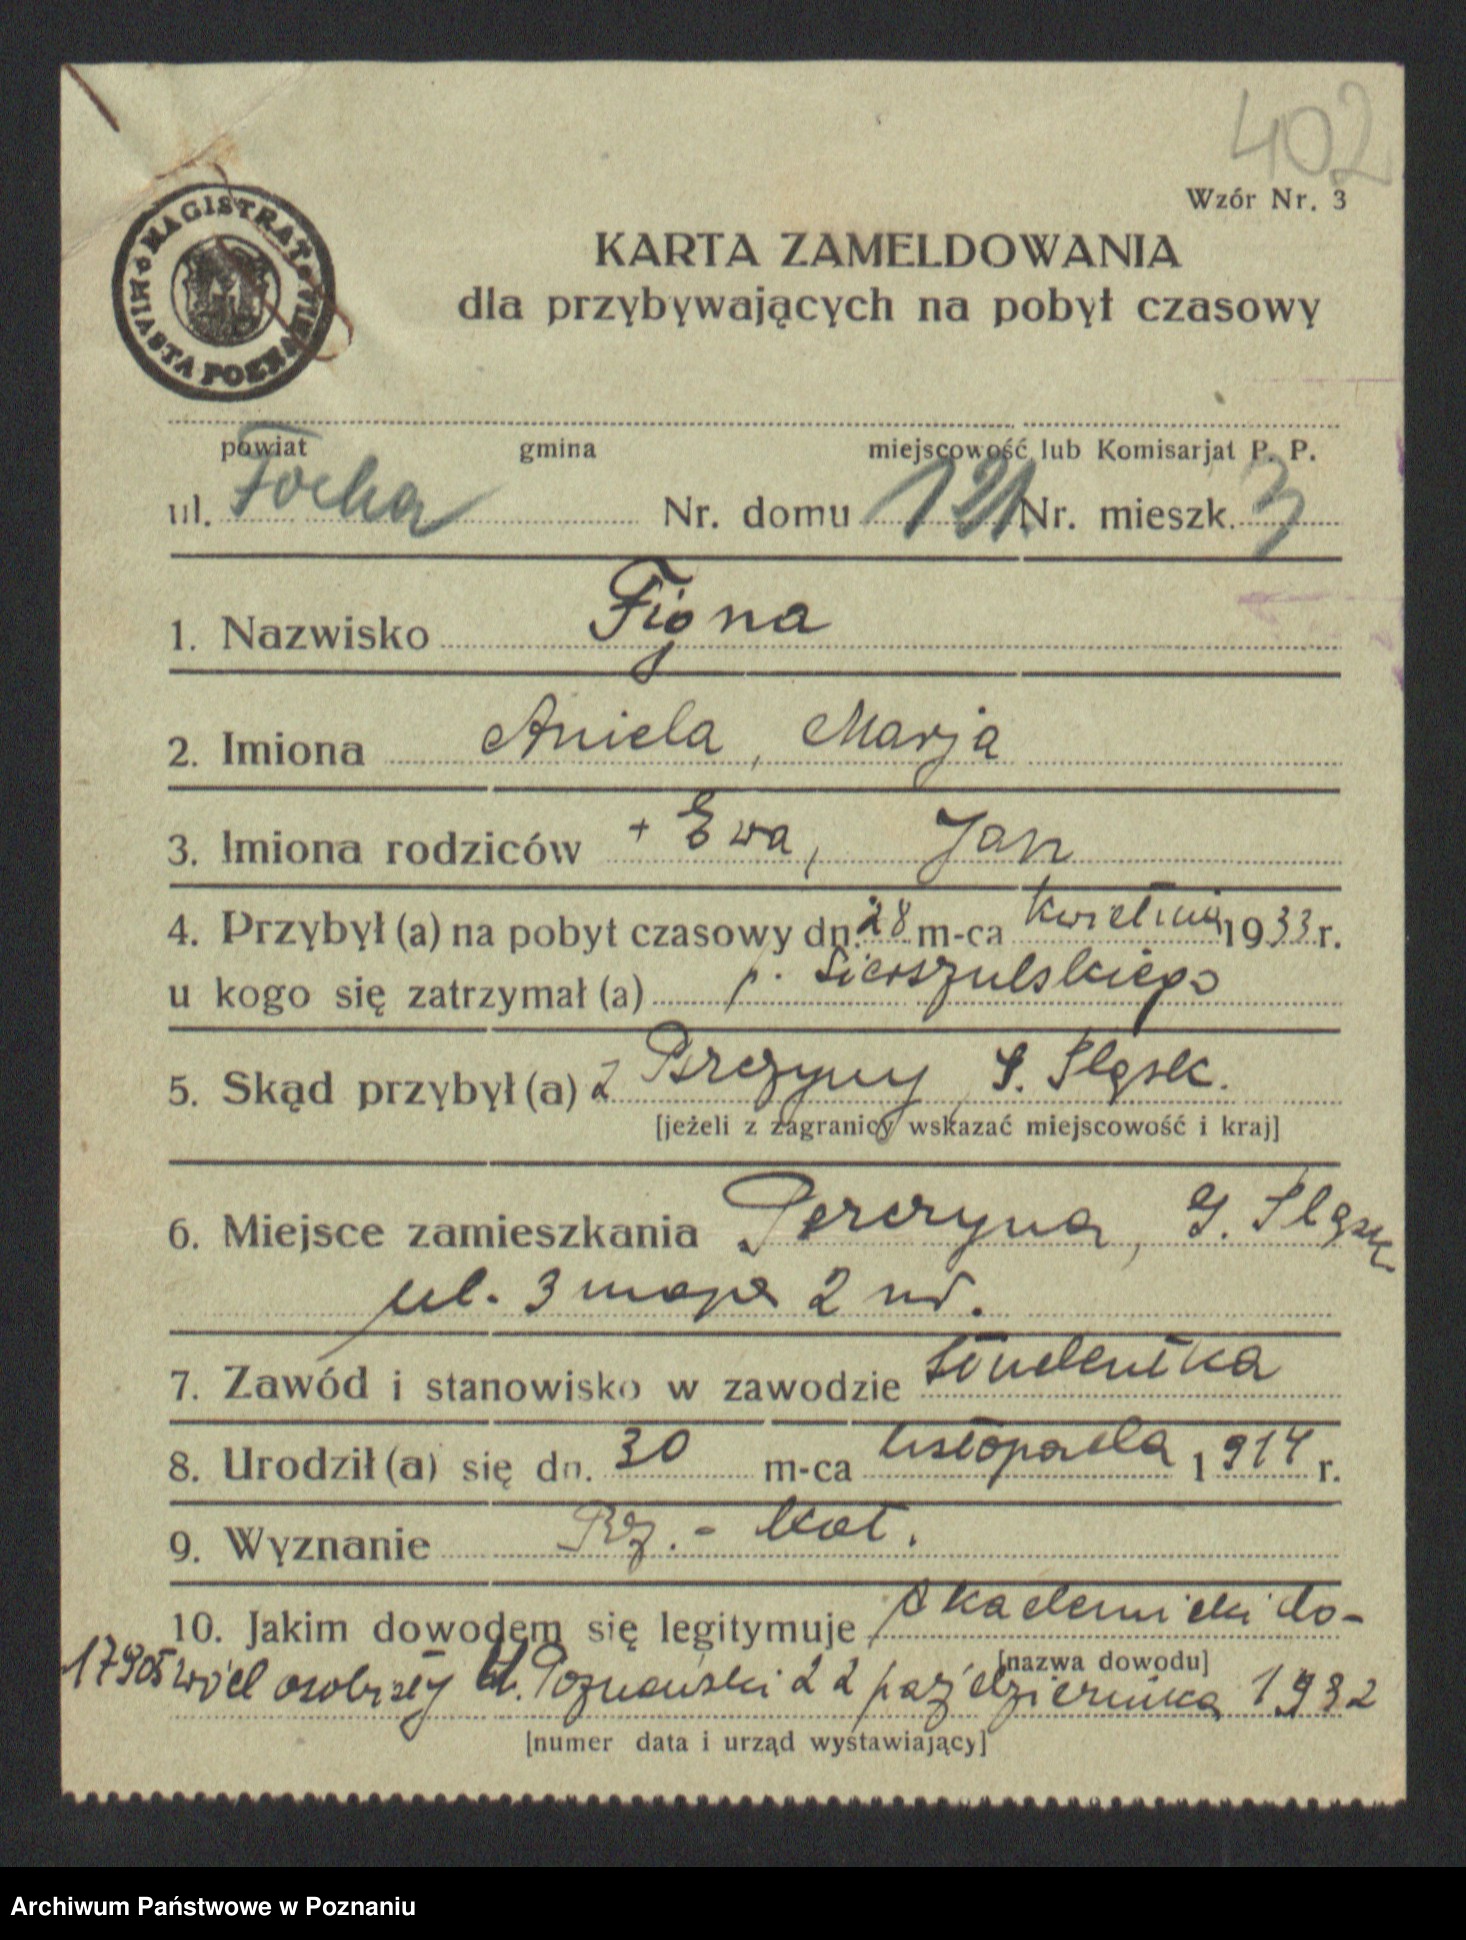 402
Wzór Nr. 3
MAGISTRAT MIASTA POZNANIA
KARTA ZAMELDOWANIA
dla przybywających na pobyt czasowy
powiat gmina miejscowość lub Komisarjat P. P.
ul. Focha Nr. domu 121. Nr. mieszk. 3
1. Nazwisko Figna
2. Imiona Aniela, Marja
3. Imiona rodziców + Ewa, Jan
4. Przybył(a) na pobyt czasowy dn. 28 m-ca kwietnia 1933 r.
u kogo się zatrzymał(a) p. Sierszulskiego
5. Skąd przybył(a) z Pszczyny Śląsk.
[jeżeli z zagranicy wskazać miejscowość i kraj]
6. Miejsce zamieszkania Pszczyna, G. Śląsk
ul. 3 maja 2
7. Zawód i stanowisko w zawodzie studentka
8. Urodził(a) się dn. 30 m-ca listopada 1914 r.
9. Wyznanie Rz. - kat.
10. Jakim dowodem się legitymuje Akademicki do-
[nazwa dowodu]
17905 wód osobisty U. Poznański 22 października 1932
[numer data i urząd wystawiający]
Archiwum Państwowe w Poznaniu